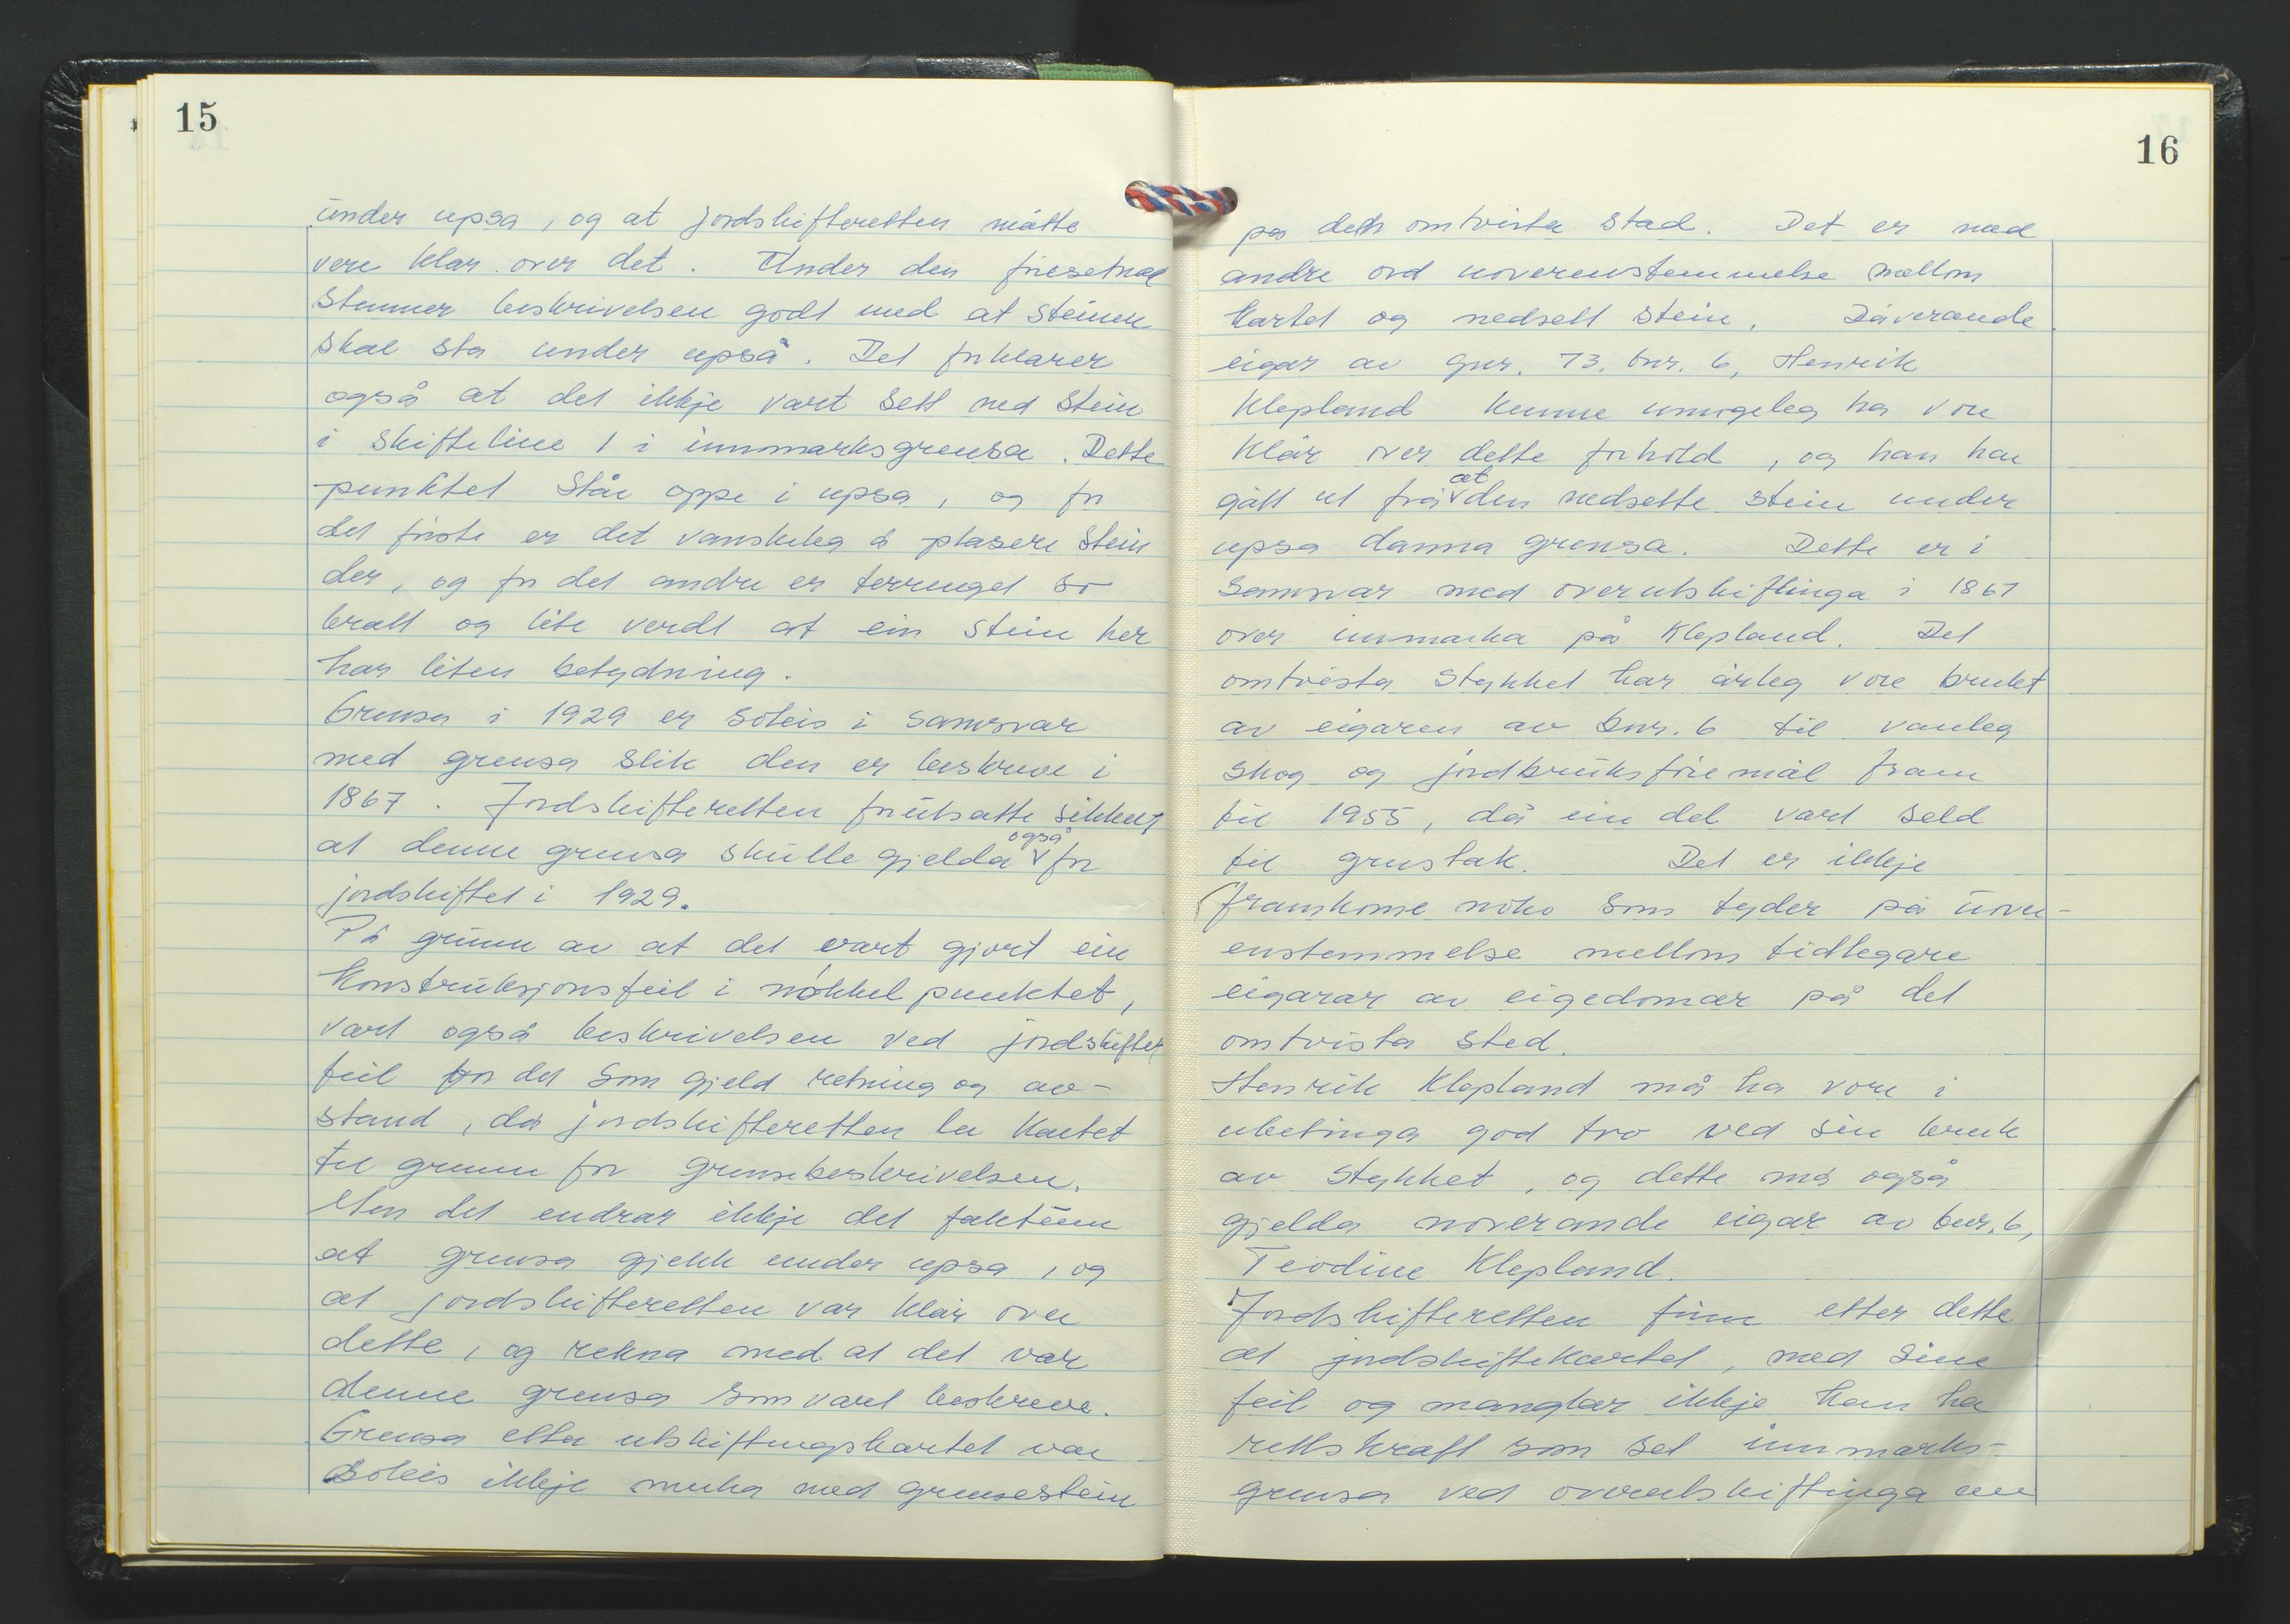 15
under upsa, og at jordskifteretten måtte
vere klar over det. Under den føresetnad
stemmer beskrivelsen godt med at steinen
skal sta under upså. Det forklarer
også at det ikkje vart sett ned stein
i skifteline 1 i innmarksgrensa. Dette
punktet står oppe i upsa, og for
det første er det vanskeleg å plasere stein
der, og for det andre er terrenget so
bratt og lite verdt at ein stein her
har liten betydning.
Grensa i 1929 er soleis i samsvar
med grensa slik den er beskreve i
1867. Jordskifteretten forutsatte sikkert
at denne grensa skulle gjelda også for
jordskiftet i 1929.
På grunn av at det vart gjort ein
konstruksjonsfeil i nøkkelpunktet,
vart også beskrivelsen ved jordskiftet
feil for det som gjeld retning og av-
stand, då jordskifteretten la kartet
til grunn for grensebeskrivelsen.
Men det endrar ikkje det faktum
at grensa gjekk under upsa, og
at jordskifteretten var klår over
dette, og rekna med at det var
denne grensa som vart beskreve.
Grensa etter utskiftingskartet var
soleis ikkje merka med grensestein
16
på det omtvista stad. Det er med
andre ord uoverenstemmelse mellom
kartet og nedsett stein. Dåverande
eigar av gnr. 73. bnr. 6, Henrik
Klepland kunne umogeleg ha vore
klår over dette forhold, og han har
gått ut frå at den nedsette stein under
upsa danna grensa. Dette er i
samsvar med overutskiftinga i 1867
over innmarka på Klepland. Det
omtvista stykket har årleg vore bruket
av eigaren av bnr. 6 til vanleg
skog og jordbruksføremål fram
til 1955, då ein del vart seld
til grustak. Det er ikkje
framkome noko som tyder på uover-
enstemmelse mellom tidlegare
eigarar av eigedomar på det
omtvista sted.
Henrik Klepland må ha vore i
ubetinga god tro ved sin bruk
av stykket, og dette må også
gjelda noverande eigar av bnr. 6,
Teodine Klepland.
Jordskifteretten finn etter dette
at jordskiftekartet, med sine
feil og manglar ikkje kan ha
rettskraft som set innmarks-
grensa ved overutskiftinga av